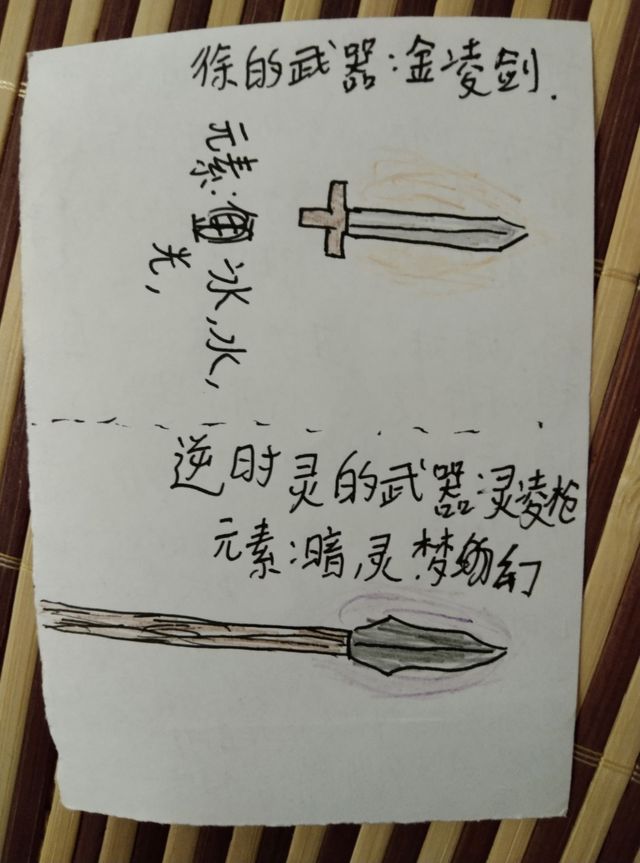 徐的武器:金凌剑.
元素:冰,水,
光,
逆时灵的武器:灵凌枪
元素:暗,灵.梦幻